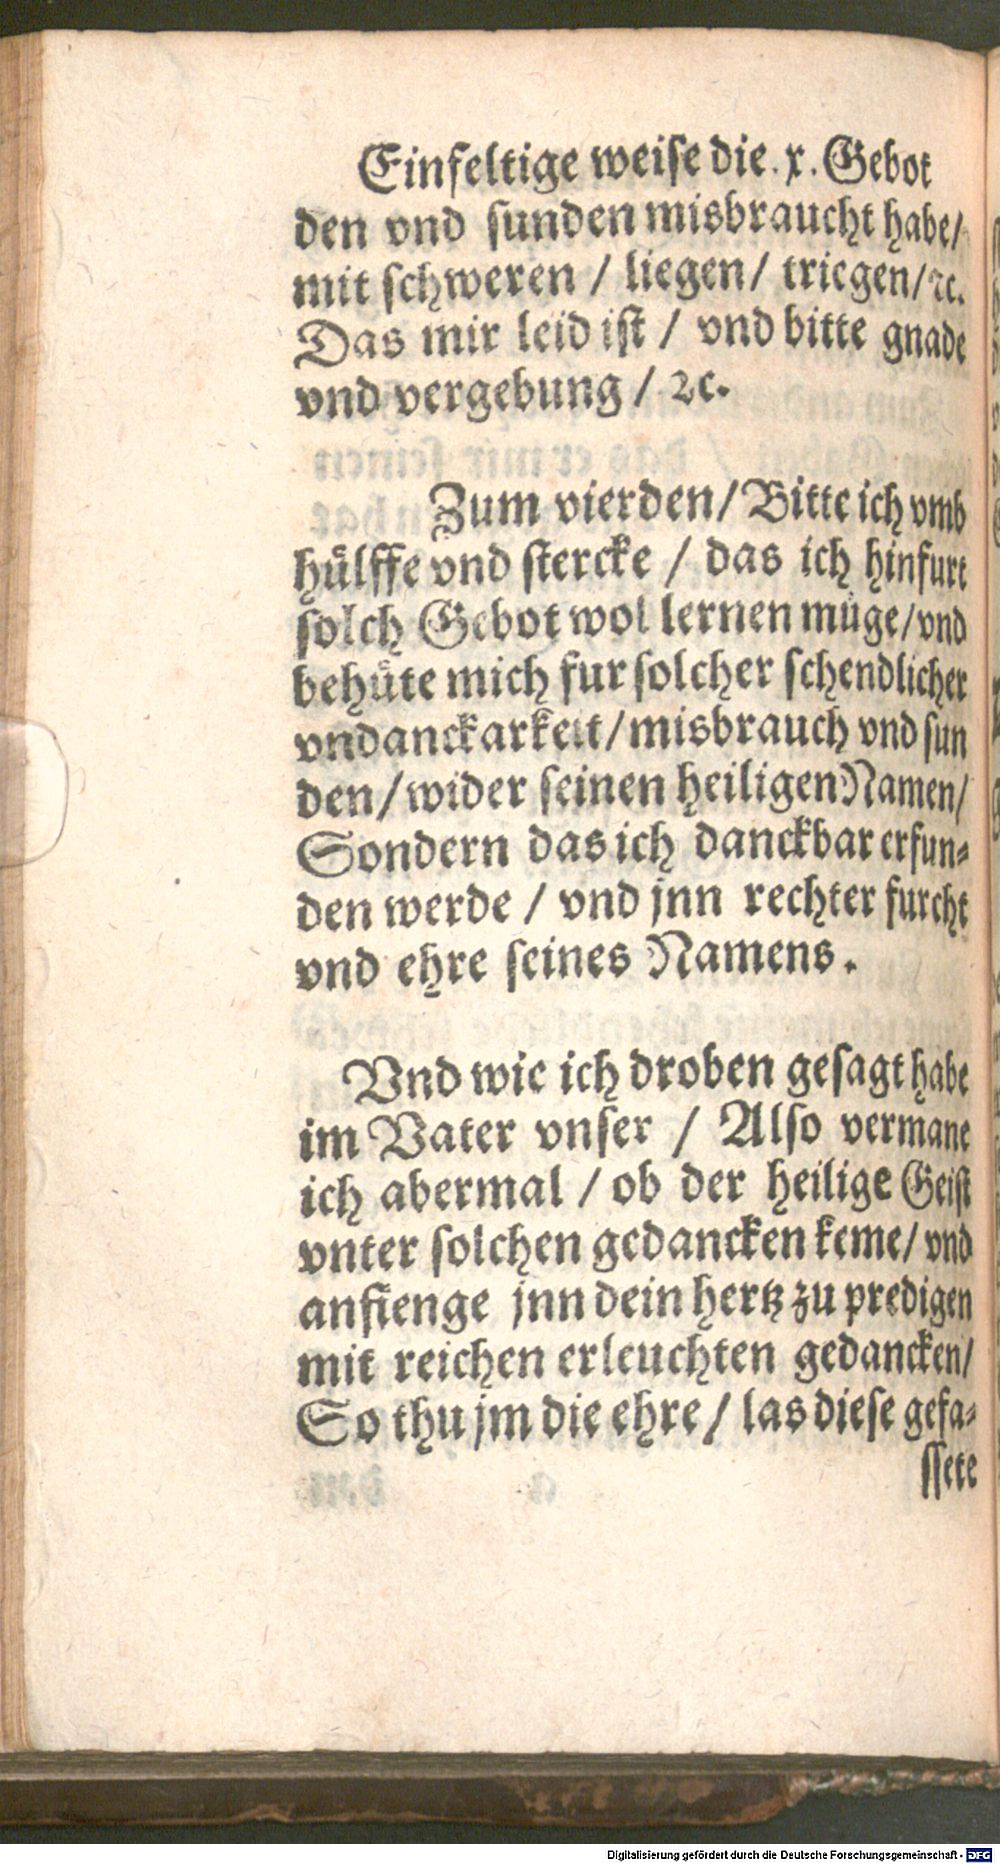 Einfeltige weise die .x. Gebot
den vnd sunden misbraucht habe/
mit schweren / liegen/ triegen/ꝛc.
Das mir leid ist / vnd bitte gnade
vnd vergebung / ꝛc.
Zum vierden/ Bitte ich vmb
huͤlffe vnd stercke / das ich hinfurt
solch Gebot wol lernen muͤge/vnd
behuͤte mich fur solcher schendlicher
vndanckarkeit/misbrauch vnd sun
den/wider seinen heiligen Namen/
Sondern das ich danckbar erfun⸗
den werde / vnd jnn rechter furcht
vnd ehre seines Namens.
Vnd wie ich droben gesagt habe
im Vater vnser / Also vermane
ich abermal / ob der heilige Geist
vnter solchen gedancken keme/ vnd
anfienge jnn dein hertz zu predigen
mit reichen erleuchten gedancken/
So thu jm die ehre/ las diese gefa⸗
ssete
Digitalisierung gefördert durch die Deutsche Forschungsgemeinschaft - DFG